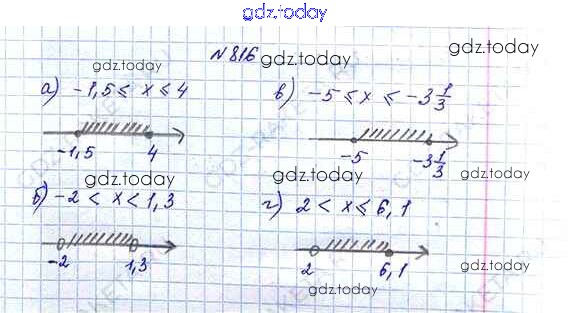 gdz.today
N 816 gdz.today gdz.today
gdz.today
а) -1,5 ≤ x ≤ 4
в) -5 ≤ x ≤ -3 1/3
-1,5 4
-5 -3 1/3
gdz.today gdz.today gdz.today
б) -2 < x < 1,3
г) 2 < x ≤ 6,1
-2 1,3
2 6,1
gdz.today
gdz.today